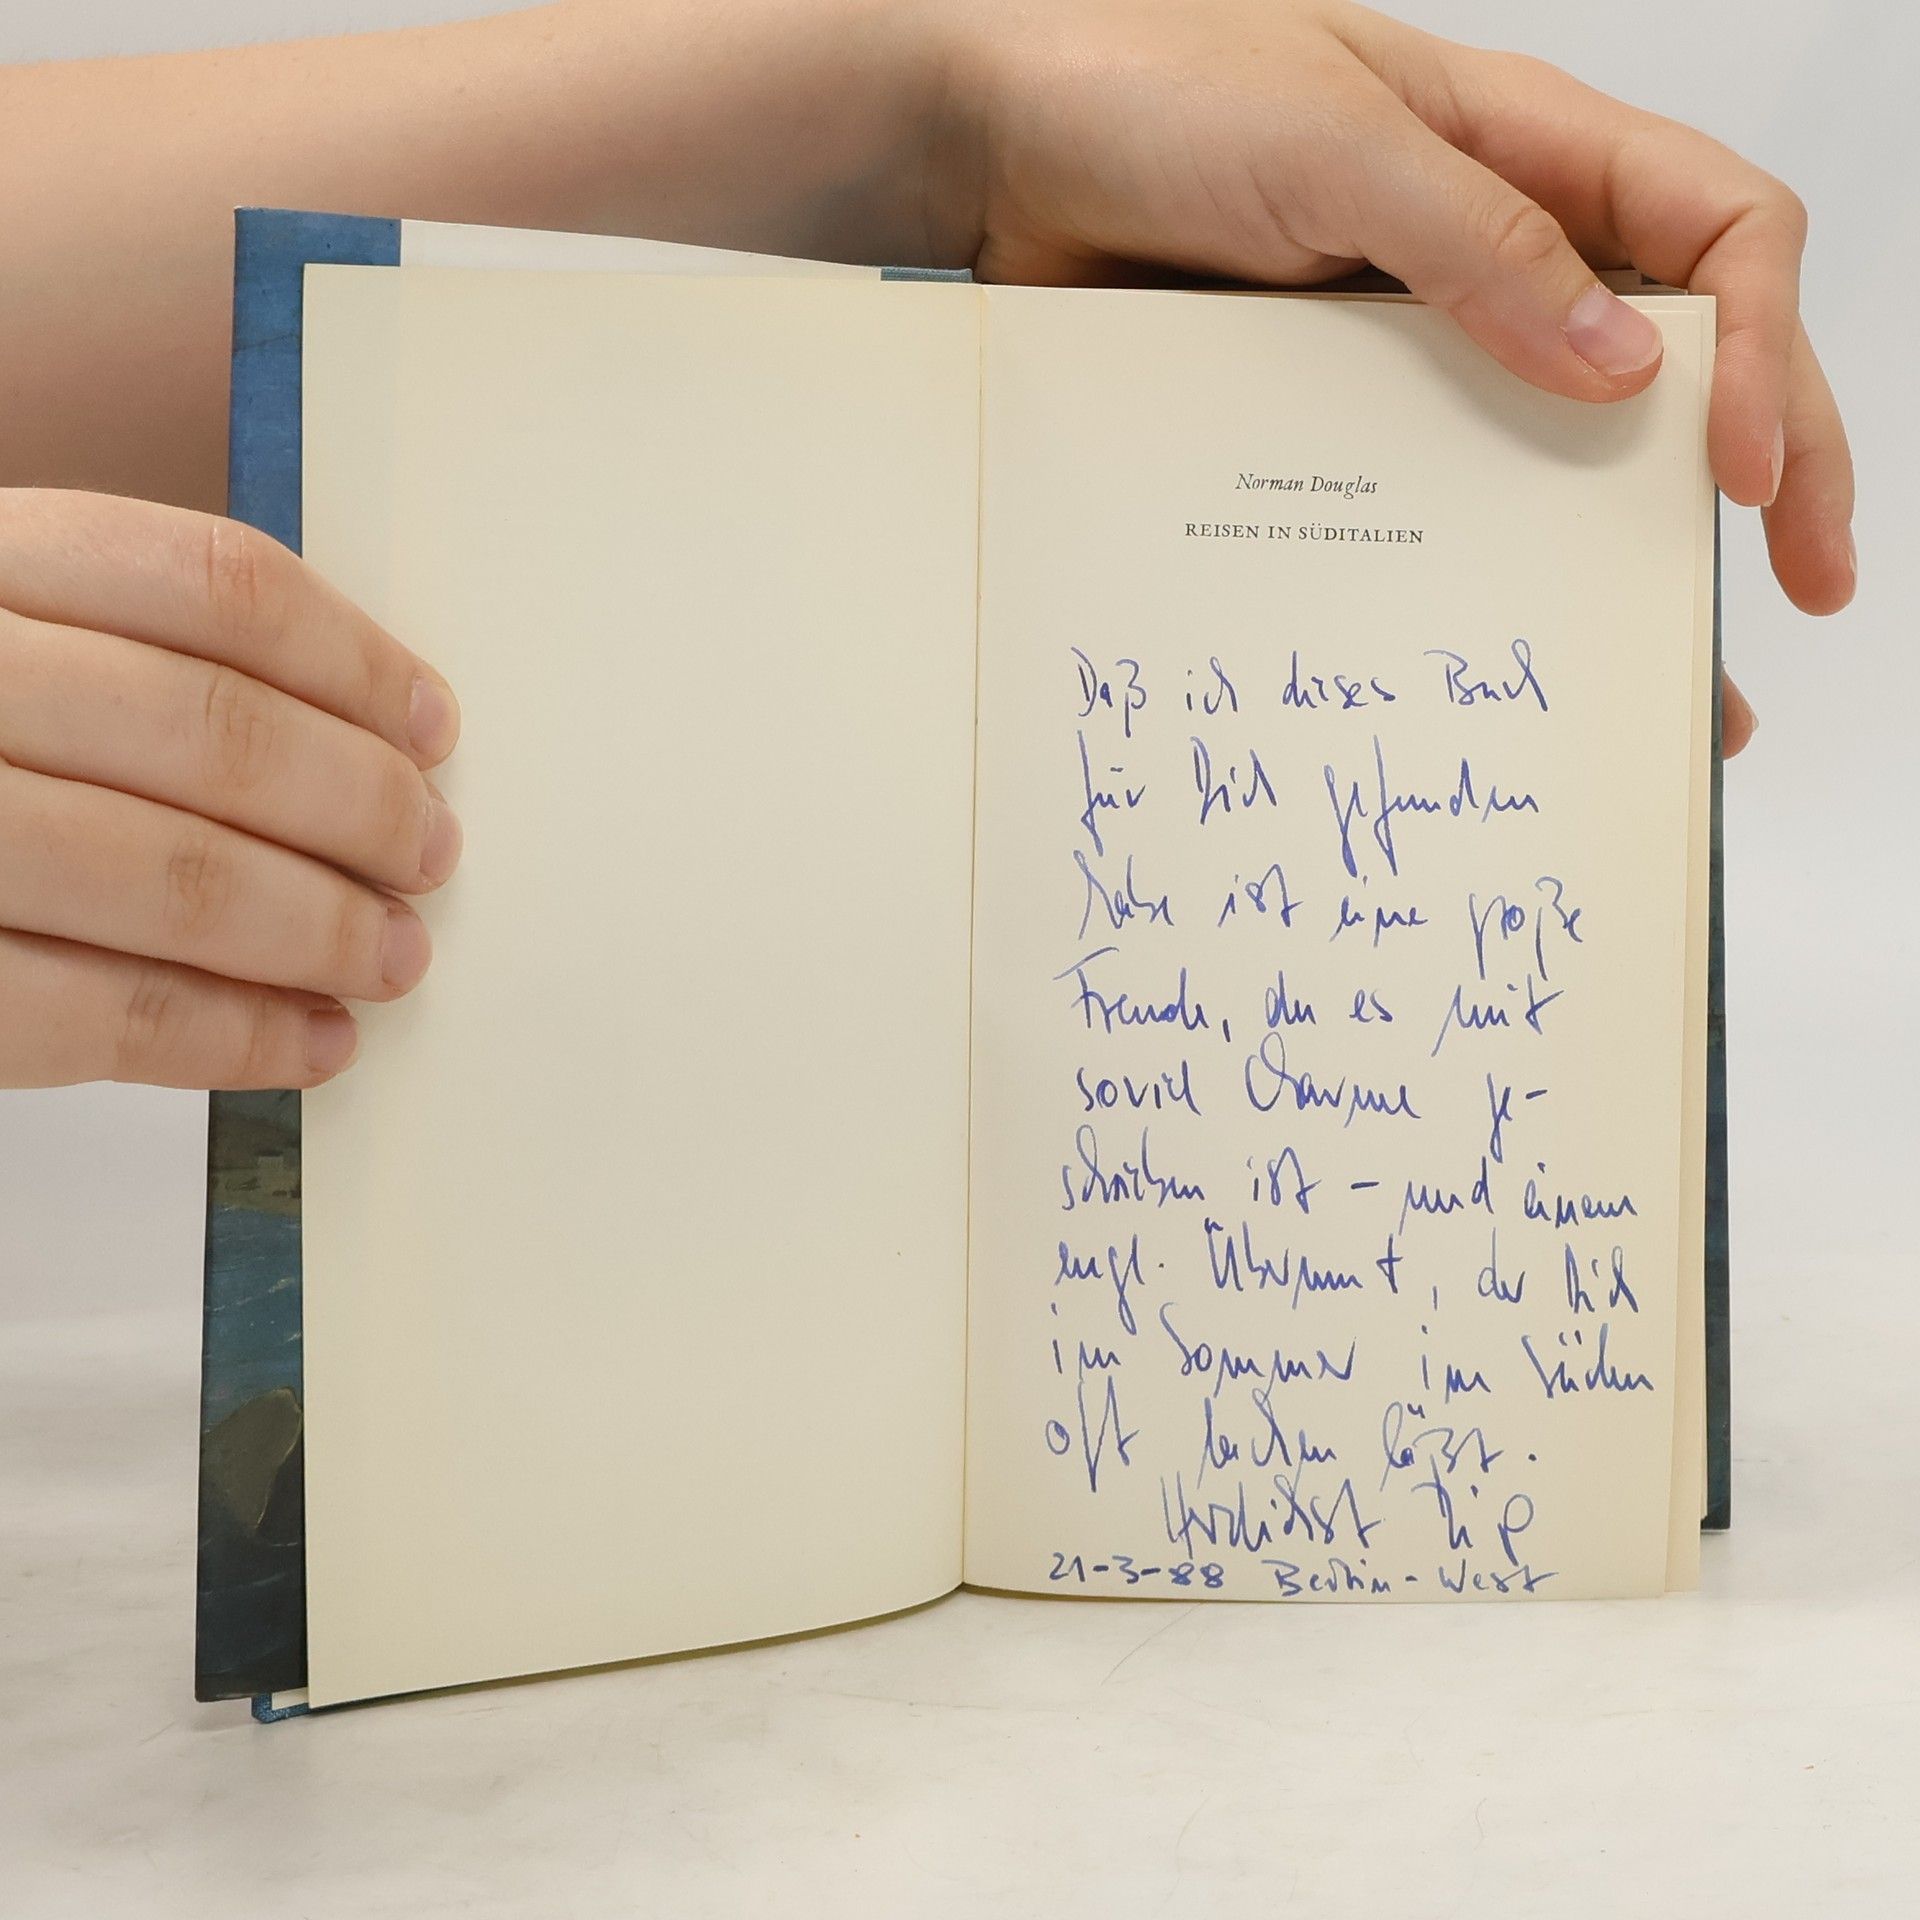 Norman Douglas
REISEN IN SÜDITALIEN
Daß ich dieses Buch
für Dich gefunden
habe ist eine große
Freude, da es mit
soviel Charme ge-
schrieben ist – und einem
engl. Übermut, der Dich
im Sommer im Süden
oft lachen läßt.
Herzlichst
21-3-88 Berlin-West